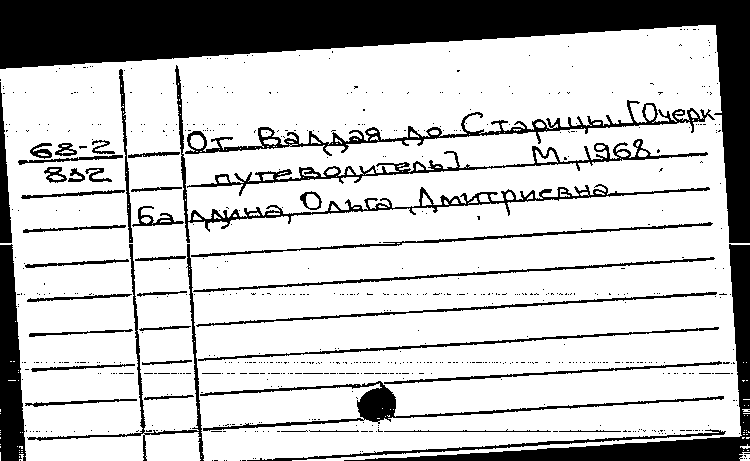 68-2 От Валдая до Старицы. [Очерк-
852 путеводитель]. М., 1968.
Балдина, Ольга Дмитриевна.